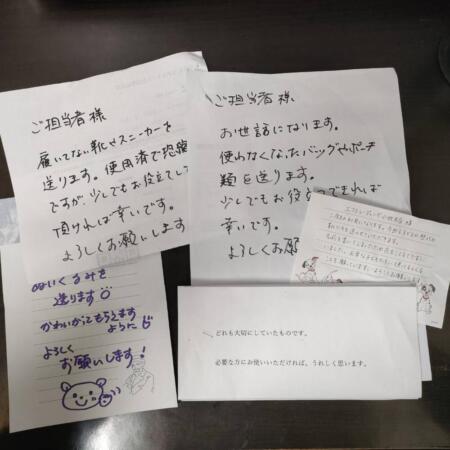 ご担当者様
履いてない靴やスニーカーを
送ります。使用済で恐縮
ですが、少しでもお役立てして
頂ければ幸いです。
よろしくお願いします
ご担当者様、
お世話になります。
使わなくなったバッグやポーチ
類を送ります。
少しでもお役
できれば
幸いです。
よろしくお願
ぬいぐるみを
送ります
かわいがってもらえます
ように
よろしく
お願いします!
どれも大切にしていたものです。
必要な方にお使いいただければ、うれしく思います。